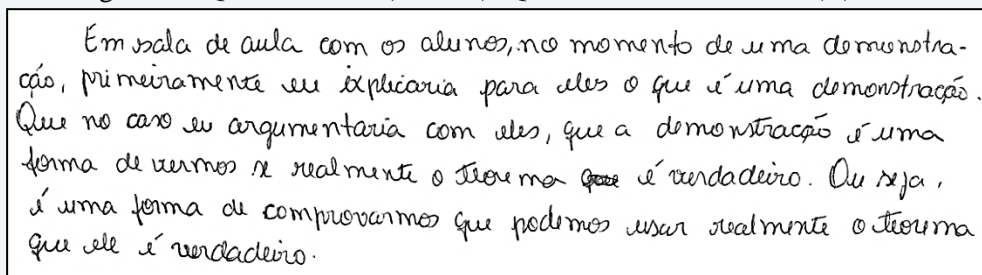 Em sala de aula com os alunos, no momento de uma demonstra-
ção, primeiramente eu explicaria para eles o que é uma demonstração.
Que no caso eu argumentaria com eles, que a demonstração é uma
forma de vermos se realmente o teorema é verdadeiro. Ou seja,
é uma forma de comprovarmos que podemos usar realmente o teorema
que ele é verdadeiro.